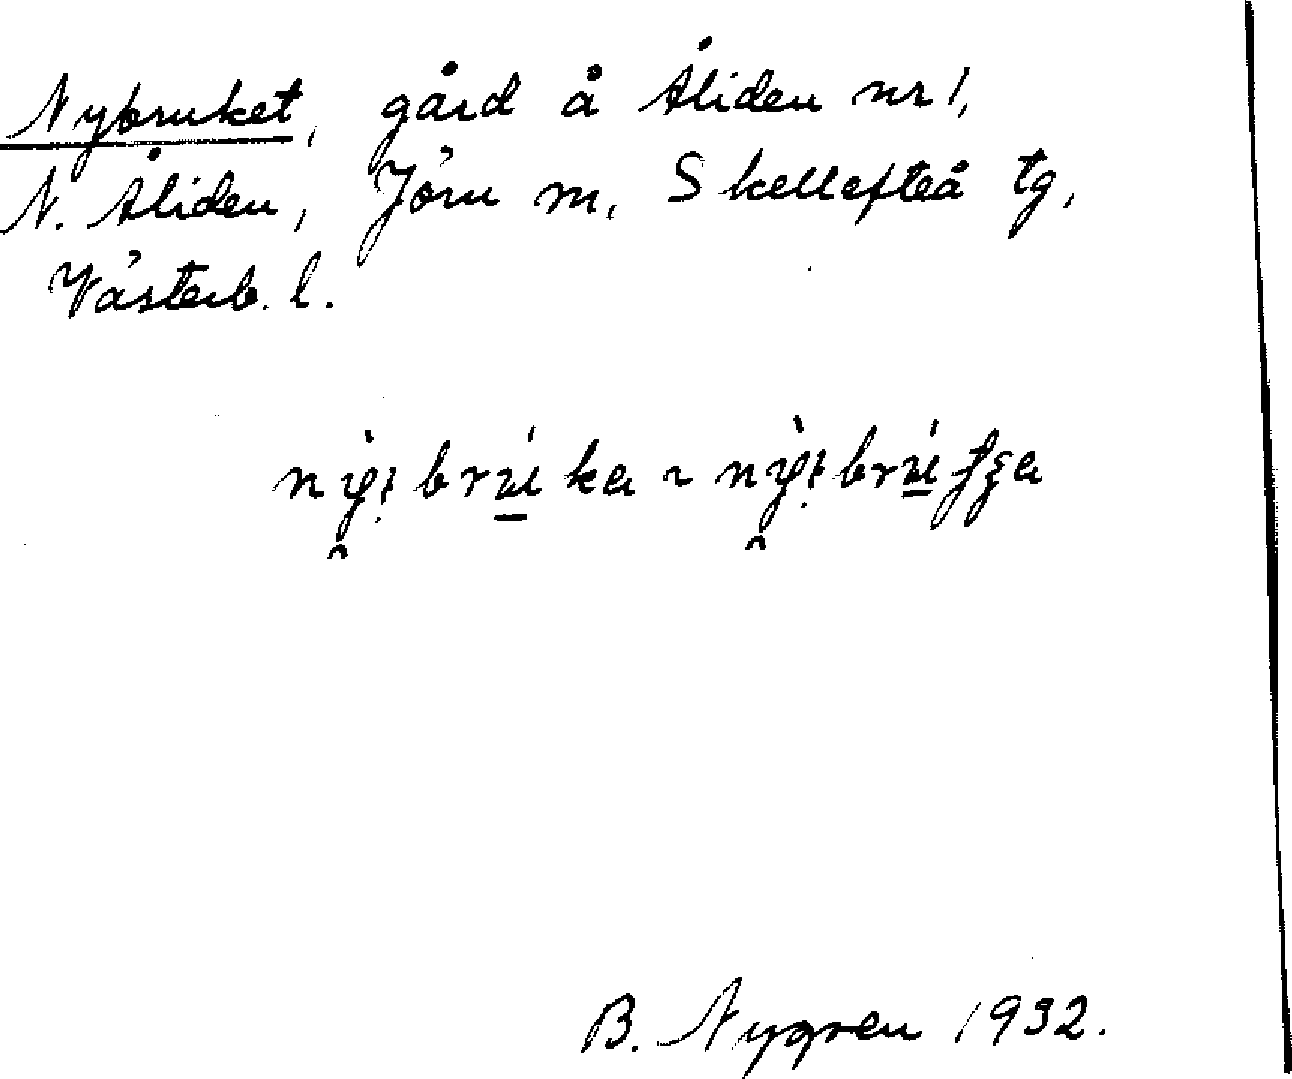 Nybruket, gård å Åliden nr 1,
N. Åliden, Jörn m, Skellefteå tg,
Västerb. l.
B. Nygren 1932.